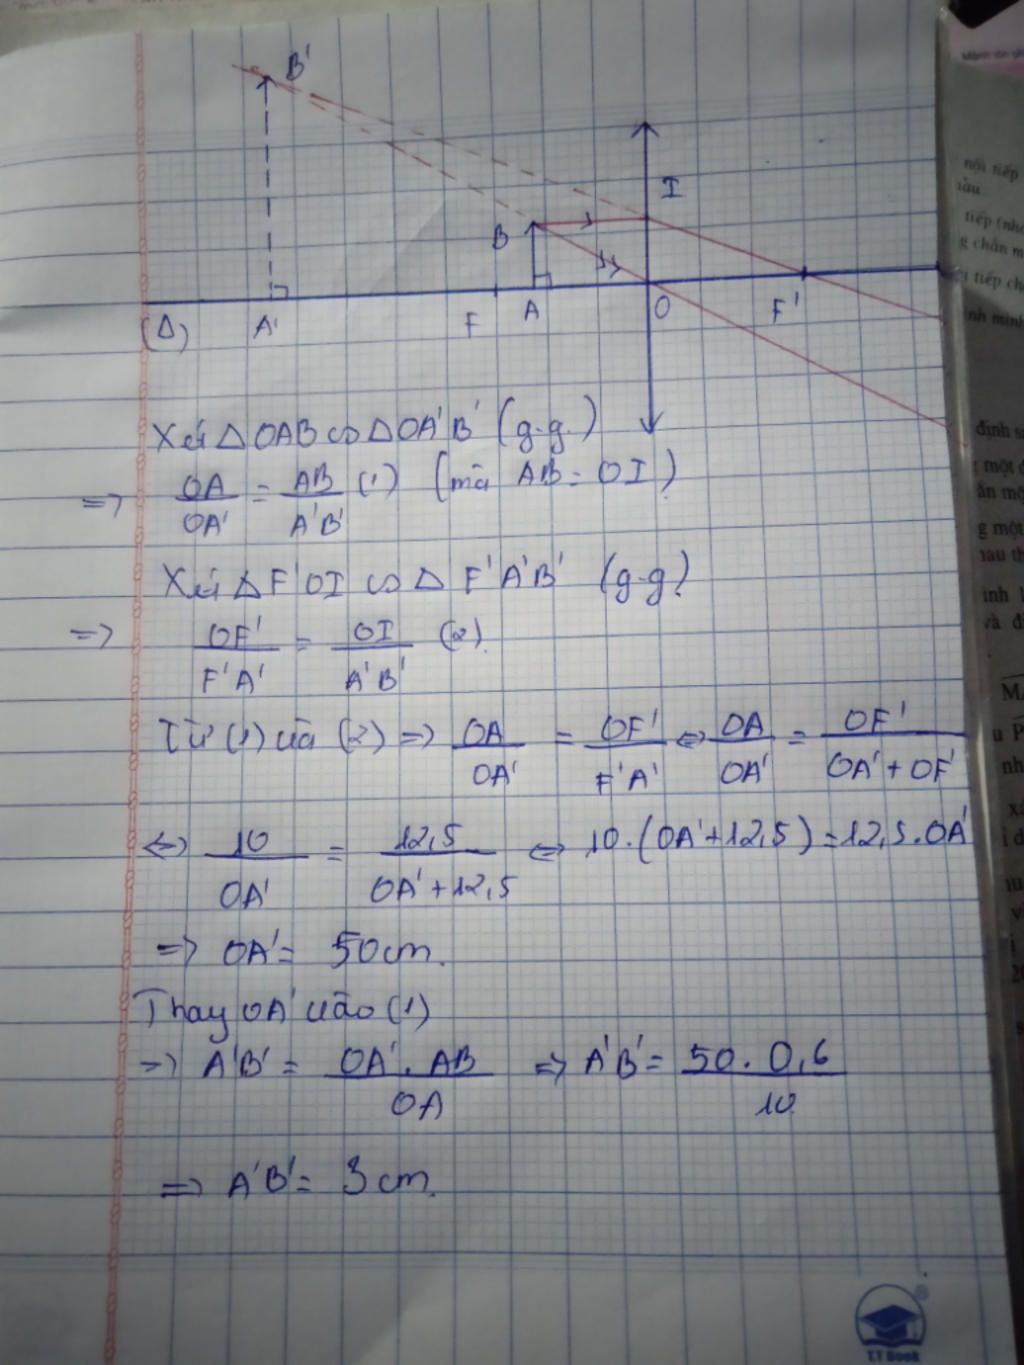 B'
I
B
(Δ) A' F A O F'
Xét ΔOAB ∽ ΔOA'B' (g.g)
=> OA/OA' = AB/A'B' (1) (mà AB = OI)
Xét ΔF'OI ∽ ΔF'A'B' (g-g)
=> OF'/F'A' = OI/A'B' (2)
Từ (1) và (2) => OA/OA' = OF'/F'A' <=> OA/OA' = OF'/OA'+OF'
<=> 10/OA' = 12,5/OA'+12,5 <=> 10.(OA'+12,5) = 12,5.OA'
=> OA' = 50cm.
Thay OA' vào (1)
=> A'B' = OA'.AB/OA => A'B' = 50.0,6/10
=> A'B' = 3cm.
nội tiếp
tiếp
g chắn m
tiếp ch
định
một
g một
và
M
nh
T.T Book